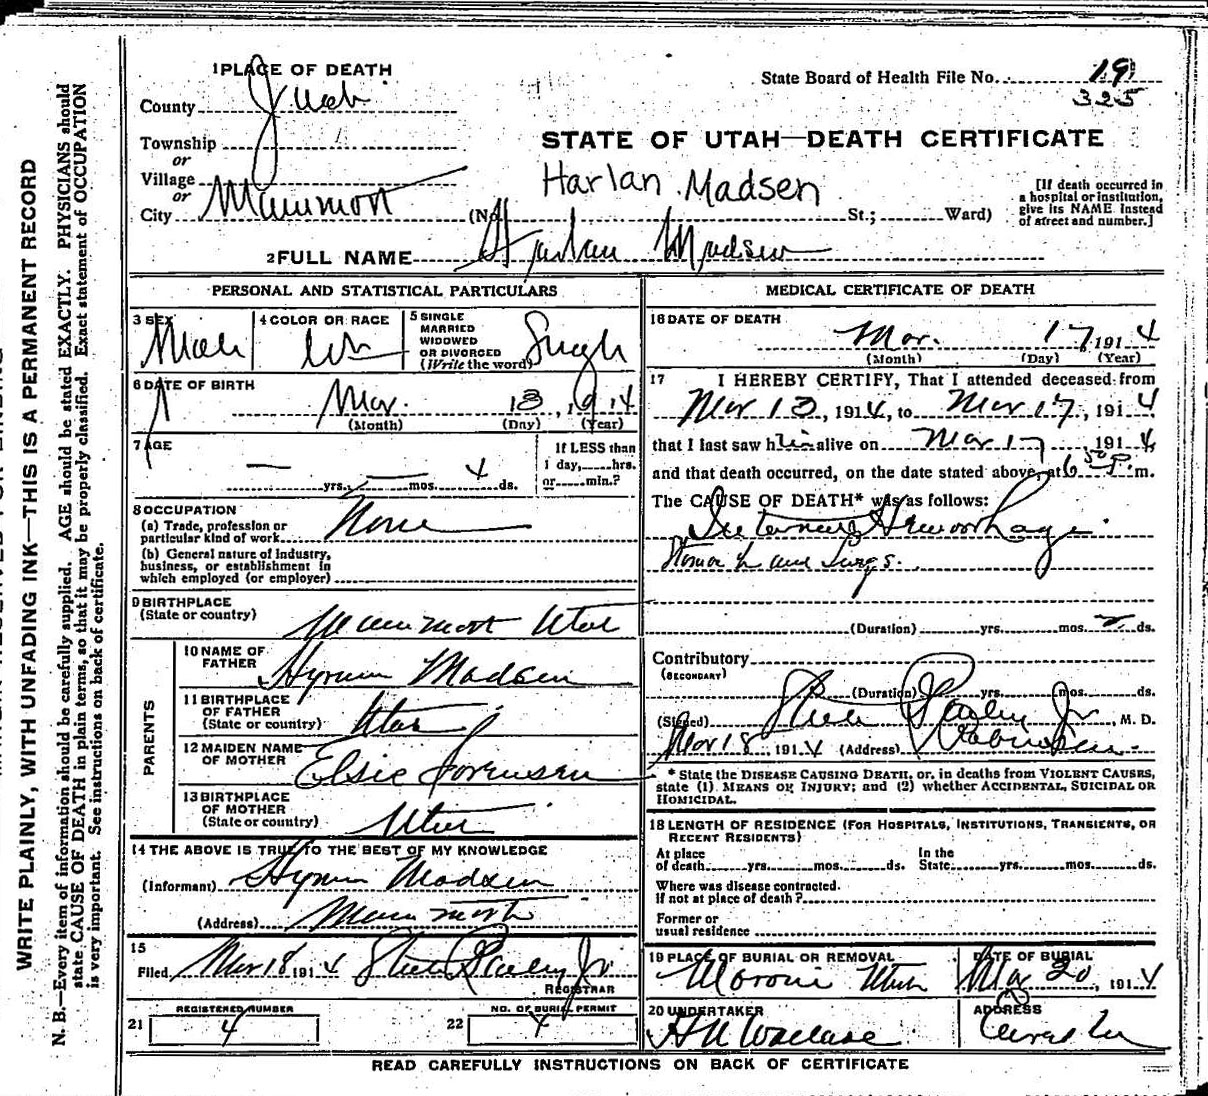 1 PLACE OF DEATH
County Juab
State Board of Health File No. 19
325
Township
or
Village
or
City Mammoth
STATE OF UTAH—DEATH CERTIFICATE
Harlan Madsen
(No. St.; Ward)
[If death occurred in
a hospital or institution,
give its NAME instead
of street and number.]
2 FULL NAME Harlan Madsen
PERSONAL AND STATISTICAL PARTICULARS
3 SEX Male
4 COLOR OR RACE Wh
5 SINGLE
MARRIED
WIDOWED
OR DIVORCED
(Write the word) Single
6 DATE OF BIRTH
Mar. 13, 1914
(Month) (Day) (Year)
7 AGE
— yrs. — mos. 4 ds.
If LESS than
1 day, hrs.
or min.?
8 OCCUPATION
(a) Trade, profession or
particular kind of work None
(b) General nature of industry,
business, or establishment in
which employed (or employer)
9 BIRTHPLACE
(State or country) Mammoth Utah
PARENTS
10 NAME OF
FATHER Hyrum Madsen
11 BIRTHPLACE
OF FATHER
(State or country) Utah
12 MAIDEN NAME
OF MOTHER Elsie Sorensen
13 BIRTHPLACE
OF MOTHER
(State or country) Utah
14 THE ABOVE IS TRUE TO THE BEST OF MY KNOWLEDGE
(Informant) Hyrum Madsen
(Address) Mammoth
15
Filed Mar 18 1914 Steele Bailey Jr
REGISTRAR
REGISTERED NUMBER
21 4
NO. OF BURIAL PERMIT
22 4
MEDICAL CERTIFICATE OF DEATH
16 DATE OF DEATH
Mar. 17 1914
(Month) (Day) (Year)
17 I HEREBY CERTIFY, That I attended deceased from
Mar 13, 1914, to Mar 17, 1914
that I last saw him alive on Mar 17, 1914,
and that death occurred, on the date stated above, at 6 50 P. m.
The CAUSE OF DEATH* was as follows:
Internal Hemorrhage
Stomach and Lungs.
(Duration) yrs. mos. 2 ds.
Contributory
(SECONDARY)
(Duration) yrs. mos. ds.
(Signed) Steele Bailey Jr, M. D.
Mar 18, 1914 (Address) Robinson
* State the DISEASE CAUSING DEATH, or, in deaths from VIOLENT CAUSES,
state (1) MEANS OF INJURY; and (2) whether ACCIDENTAL, SUICIDAL OR
HOMICIDAL.
18 LENGTH OF RESIDENCE (FOR HOSPITALS, INSTITUTIONS, TRANSIENTS, OR
RECENT RESIDENTS)
At place
of death yrs. mos. ds.
In the
State yrs. mos. ds.
Where was disease contracted.
if not at place of death?
Former or
usual residence
19 PLACE OF BURIAL OR REMOVAL
Moroni Utah
DATE OF BURIAL
Mar 20, 1914
20 UNDERTAKER
Wallace
ADDRESS
READ CAREFULLY INSTRUCTIONS ON BACK OF CERTIFICATE
WRITE PLAINLY, WITH UNFADING INK—THIS IS A PERMANENT RECORD
N. B.—Every item of information should be carefully supplied. AGE should be stated EXACTLY. PHYSICIANS should
state CAUSE OF DEATH in plain terms, so that it may be properly classified. Exact statement of OCCUPATION
is very important. See instructions on back of certificate.